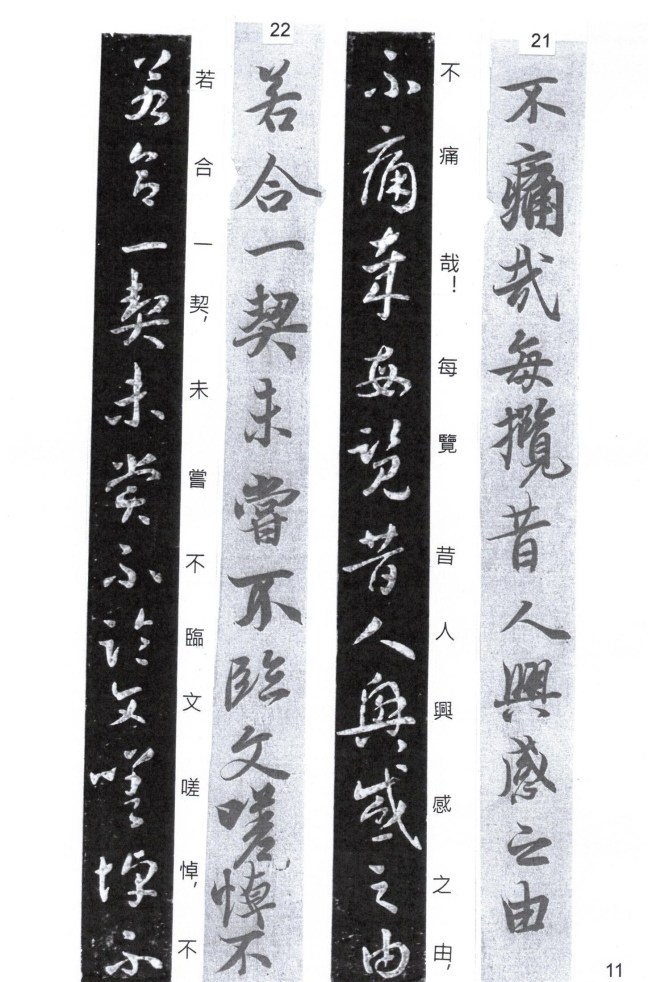 21
不痛哉每攬昔人興感之由
不痛哉！每覽昔人興感之由，
不痛哉每覽昔人興感之由
22
若合一契未嘗不臨文嗟悼不
若合一契，未嘗不臨文嗟悼，不
若合一契未嘗不臨文嗟悼不
11